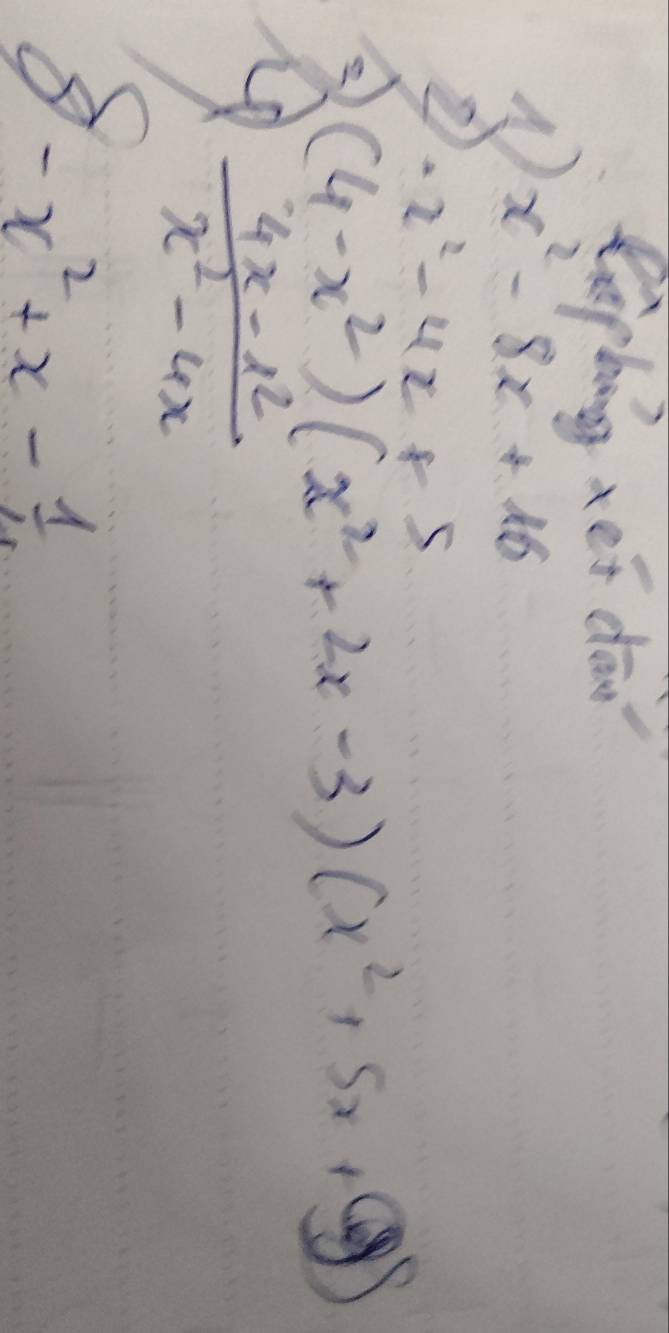 Lập bảng xét dấu
1) x² - 8x + 16
2) -x² - 4x + 5
3) (4 - x²)(x² + 2x - 3)(x² + 5x + 9)
4) (4x - 12)/(x² - 4x)
5) -x² + x - 1/4